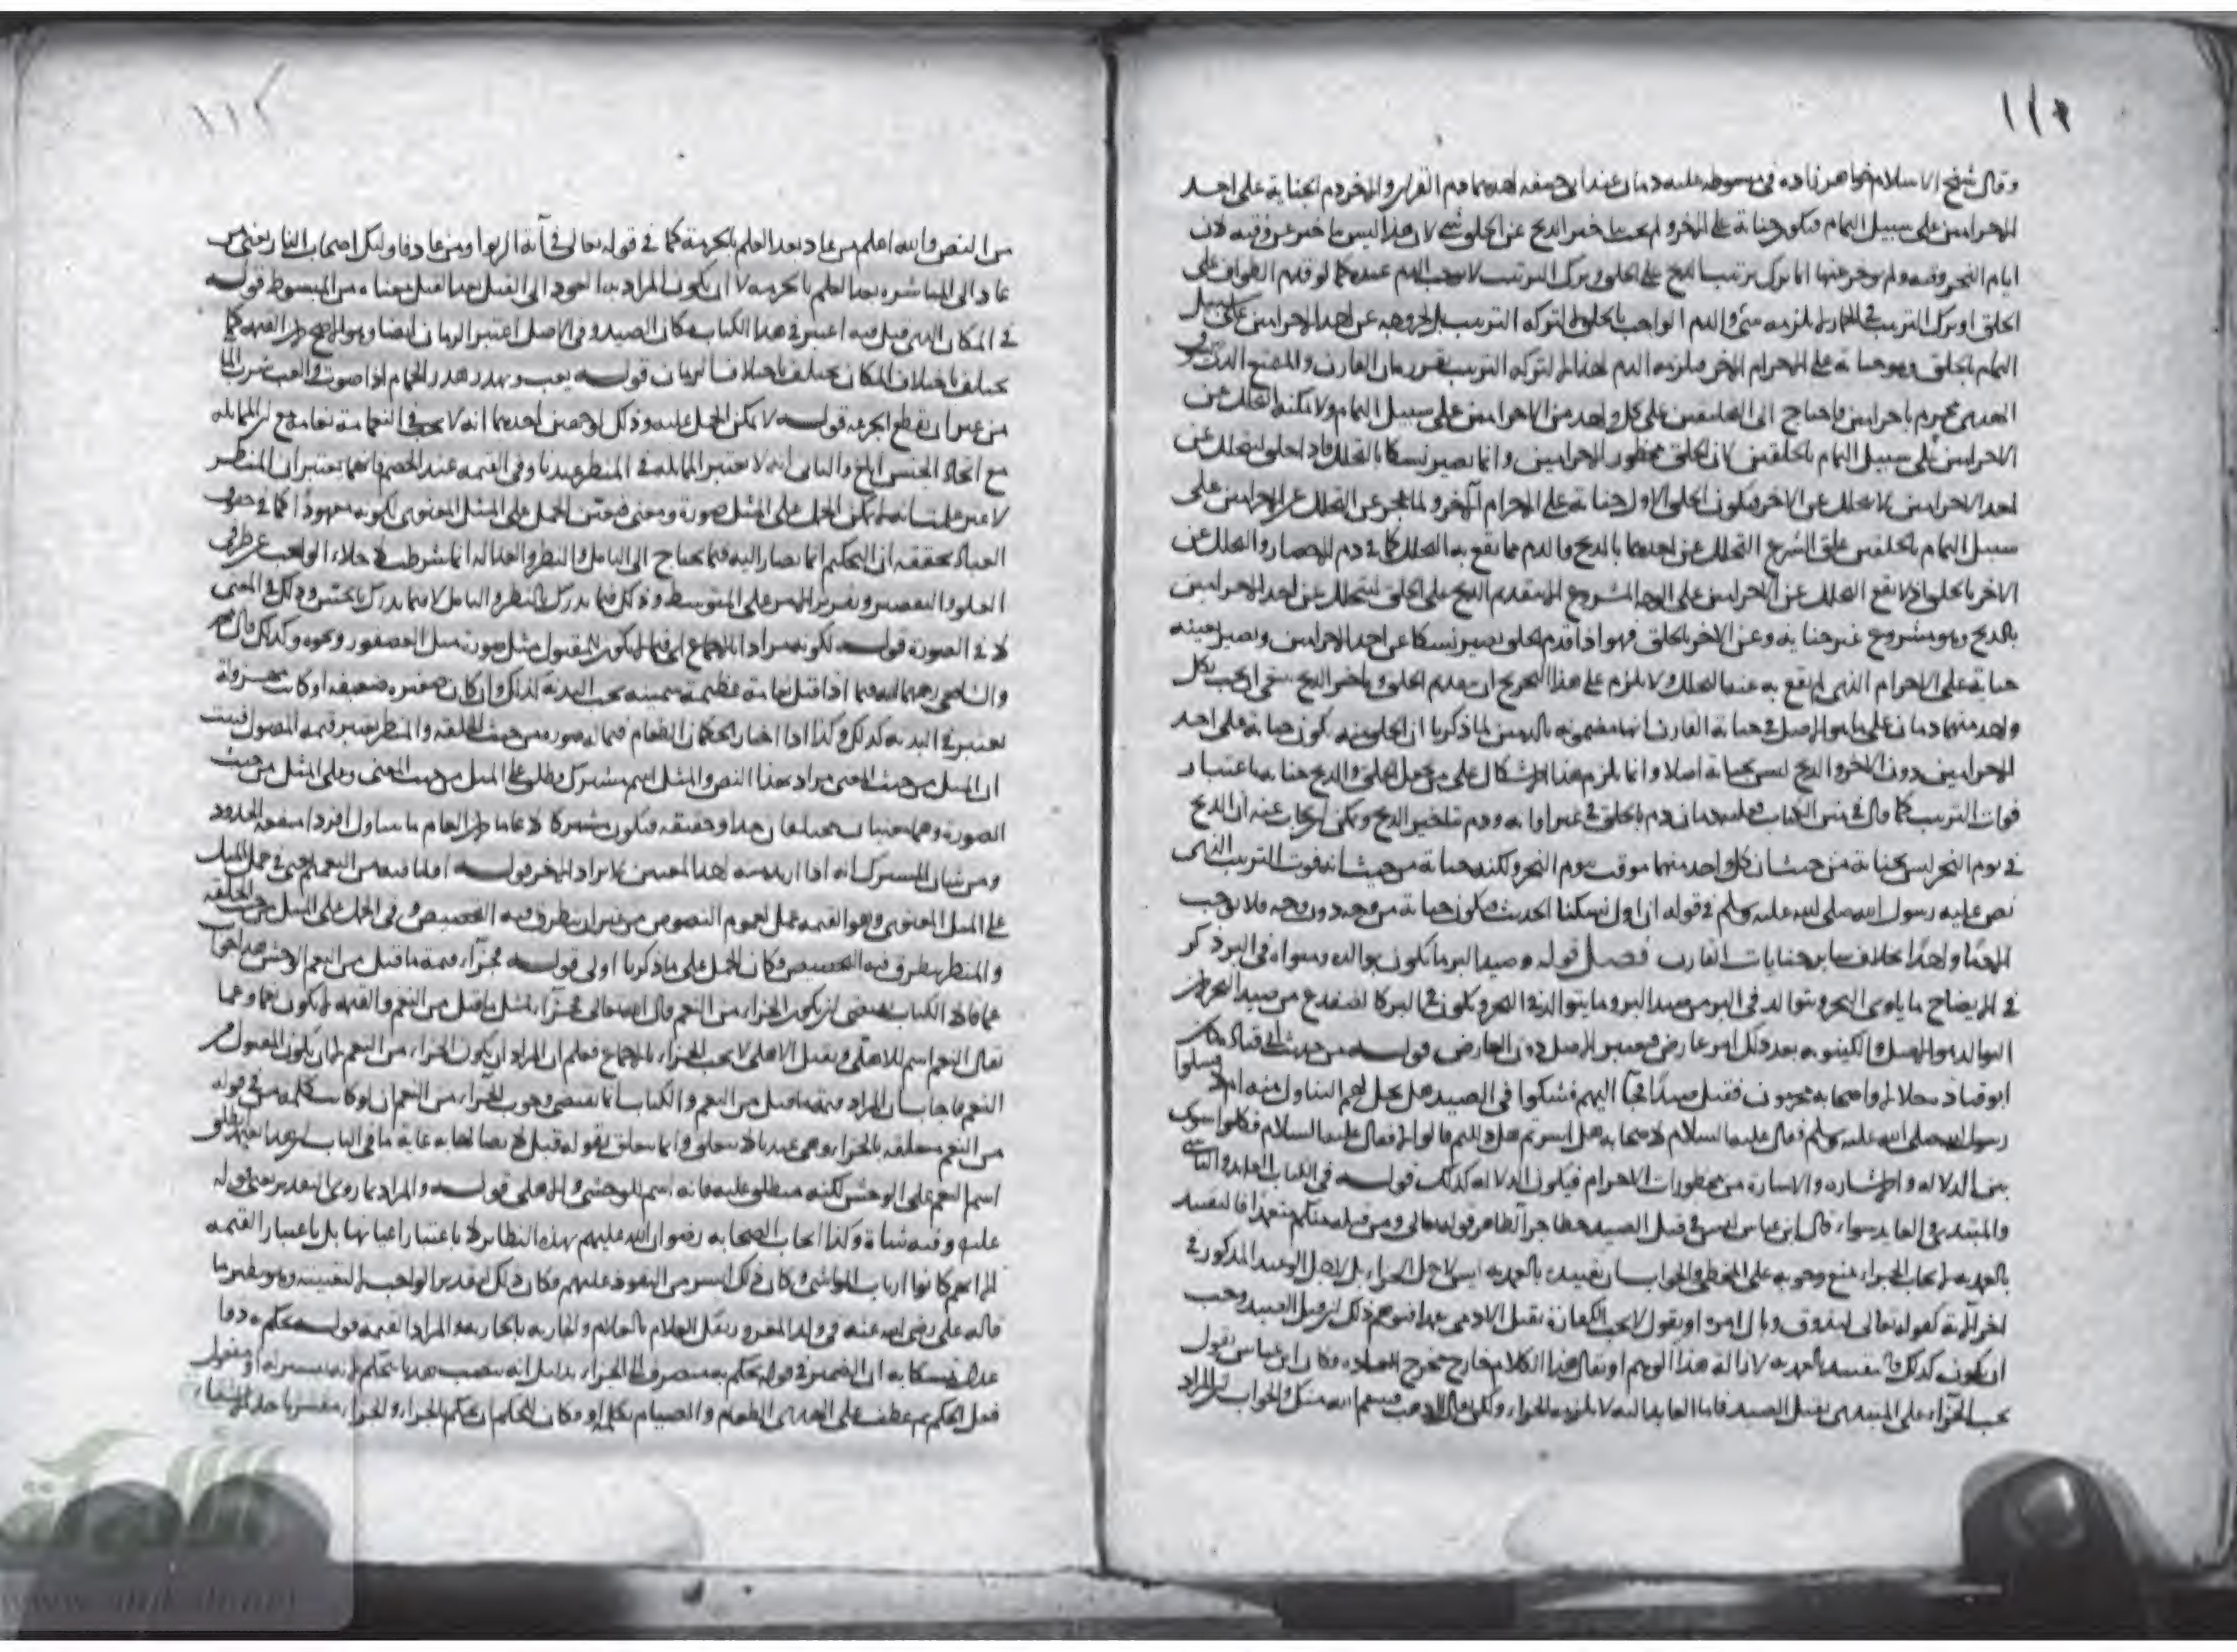 ١١١
وقال شيخ الاسلام خواهر زاده في مبسوطه عليه دمان عند ابي حنيفه احدهما دم القران والاخر دم الجناية على احد
الاحرامين على سبيل التمام فيكون جناية على الاخر ولم يجب بتاخير الذبح عن الحلق شي لان هذا ليس بتاخير عن وقته لان
ايام النحر وقته ولم يوخر عنها انما ترك ترتيب الذبح على الحلق وبترك الترتيب لا يجب الدم عنده كما لو قدم الطواف على
الحلق او ترك الترتيب في الرمي لم يلزمه شي والدم الواجب بالحلق لا لتركه الترتيب بل لخروجه عن احد الاحرامين على سبيل
التمام بالحلق وهو جناية على الاحرام الاخر فيلزمه الدم لهذا لا لتركه الترتيب القارن والمتمتع الذي
الهدي محرم باحرامين فاحتاج الى التحلل على كل واحد من الاحرامين على سبيل التمام ولا يمكنه التحلل عن
الاحرامين على سبيل التمام بالحلقين لان الحلق محظور الاحرامين وانما يصير نسكا بالتحلل فاذا حلق لتحلل عن
احد الاحرامين لا يتحلل عن الاخر فيكون الحلق الاول جناية على الاحرام الاخر ولما عجز عن التحلل عن الاحرامين على
سبيل التمام بالحلقين علق الشرع التحلل عن احدهما بالذبح والدم مما يقع به التحلل كما في دم الاحصار والتحلل عن
الاخر بالحلق اذ لا يقع التحلل عن الاحرامين على الوجه المشروع الا بتقديم الذبح على الحلق ليتحلل عن احد الاحرامين
بالذبح وهو مشروع غير جناية وعن الاخر بالحلق فهو اذا قدم الحلق يصير نسكا عن احد الاحرامين ويصير بعينه
جناية على الاحرام الذي لم يقع به عنه التحلل ولا يلزم على هذا التخريج ان بتقديم الحلق وتاخير الذبح ينبغي ان يجب بكل
واحد منهما دمان على ما هو الاصل في جناية القارن انها مضمونه بالدمين لما ذكرنا ان الحلق منه يكون جناية على احد
الاحرامين دون الاخر والذبح ليس بجناية اصلا وانما يلزم هذا الاشكال على من جعل الحلق والذبح جناية باعتبار
فوات الترتيب كما قال في متن الكتاب فعليه دمان دم بالحلق في غير اوانه ودم بتاخير الذبح ويمكن ان يجاب عنه ان الذبح
في يوم النحر ليس بجناية من حيث ان كل واحد منهما موقت بيوم النحر ولكنه جناية من حيث انه فوت الترتيب الذي
نص عليه رسول الله صلى الله عليه وسلم في قوله ان اول نسكنا الحديث فيكون جناية من وجه دون وجه فلا يوجب
الا دما واحدا بخلاف سائر جنايات القارن فصل قوله وصيد البر ما يكون توالده ومثواه في البر ذكر
في الايضاح ما ياوي البحر ويتوالد في البر من صيد البر وما يتوالد في البحر ويكون في البر كالضفدع من صيد البحر لان
التوالد هو الاصل والكينونه بعد ذلك امر عارض فيعتبر الاصل دون العارض قوله من حديث ابي قتاده كان
ابو قتاده حلالا واصحابه محرمون فقتل صيدا فجا اليهم فشكوا في الصيد هل يحل لهم التناول منه ام لا فسئلوا
رسول الله صلى الله عليه وسلم فقال عليه السلام لاصحابه هل اشرتم هل دللتم قالوا لا فقال عليه السلام فكلوا سوى
بين الدلاله والاشاره والاشارة من محظورات الاحرام فيكون الدلاله كذلك قوله في الكتاب العامد والناسي
والمبتدي والعايد سواء قال ابن عباس ليس في قتل الصيد خطا جزا لظاهر قوله تعالى ومن قتله منكم متعمدا فالتقييد
بالعمديه لايجاب الجزاء منع وجوبه على المخطي والجواب ان تقييده بالعمديه ليس لاجل الجزاء بل لاجل الوعيد المذكور في
اخر الاية كقوله تعالى ليذوق وبال امره او نقول لا تجب الكفارة بقتل الادمي عمدا فتوهم ذلك ان قتل الصيد يجب
ان يكون كذلك فقيده بالعمديه لازالة هذا الوهم او يقال هذا الكلام خارج مخرج العاده وكان ابن عباس يقول
يجب الجزاء على المبتدي بقتل الصيد فاما العايد اليه لا يلزمه الجزاء ولكن يقال له اذهب فينتقم الله منك والجواب ان المراد
١١٢
من النص والله اعلم من عاد بعد العلم بالحرمة كما في قوله تعالى في آية الربوا ومن عاد فاوليك اصحاب النار يعني من
عاد الى المباشره بعد العلم بالحرمه لا ان يكون المراد به العود الى القتل بعد القتل معناه من المبسوط قوله
في المكان الذي قتل فيه اعتبر في هذا الكتاب مكان الصيد وفي الاصل اعتبر الزمان ايضا وهو الاصح لان القيمة كما
تختلف باختلاف المكان تختلف باختلاف الزمان قوله يعب ويهدر هدر الحمام اذا صوت والعب شرب الما
من غير ان يقطع الجرعه قوله لا يمكن الحمل عليه وذلك لوجهين احدهما انه لا يجب في النعامة نعامة مع ان المماثله
مع اتحاد الجنس ابلغ والثاني انه لا تعتبر المماثله في المنظر عندنا وفي القيمه عند الخصم فانهما يعتبران المنظر
لا غير علمنا انه لم يمكن الحمل على المثل صورة ومعنى فيتعين الحمل على المثل المعنوي لكونه معهودا كما في حقوق
العباد يحققه ان التحكيم انما يصار اليه فيما يحتاج الى التامل والنظر والعداله انما شرطت لاخلاء الواجب عن طرفي
الغلو والتقصير وتقرير الامر على المتوسط وذلك فيما يدرك بالنظر والتامل لا فيما يدرك بالحس وذلك في المعنى
لا في الصورة قوله لكونه مرادا بالاجماع اي فيما لا يكون للمقتول مثل صورة مثل العصفور ونحوه وكذلك قال محمد
والشافعي رحمهما الله فيما اذا قتل نعامة عظيمة سمينه يجب البدنه كذلك وان كان صغيره ضعيفه او كانت مهزوله
يعتبر في البدنه كذلك وكذا اذا اختار الحكمان الطعام فيما له صوره من حيث الخلقه والمنظر يعتبر قيمه المقتول فثبت
ان المثل من حيث المعنى مراد بهذا النص والمثل اسم مشترك يطلق على المثل من حيث المعنى وعلى المثل من حيث
الصورة وهما معنيان مختلفان حدا وحقيقه فيكون مشتركا لا عاما لان العام ما يتناول افرادا متفقه الحدود
ومن شان المشترك انه اذا اريد منه احد المعنيين لا يراد الاخر قوله او لما فيه من التعميم يعني في حمل المثل
على المثل المعنوي وهو القيمه عمل لعموم النصوص من غير ان يتطرق فيه التخصيص وفي الحمل على المثل من حيث الخلقه
والمنظر يتطرق فيه التخصيص فكان الحمل على ما ذكرنا اولى قوله فجزاء قيمة ما قتل من النعم الوحشي هذا جواب
عما قالا الكتاب يقتضي ان يكون الجزاء من النعم قال الله تعالى فجزاء مثل ما قتل من النعم والقيمه لا يكون نعما وعما
يقال النعم اسم للاهلي وبقتل الاهلي لا يجب الجزاء بالاجماع فعلم ان المراد ان يكون الجزاء من النعم لا ان يكون المقتول من
النعم فاجاب بان المراد قيمة ما قتل من النعم والكتاب انما يقتضي وجوب الجزاء من النعم ان لو كانت كلمة من في قوله
من النعم متعلقه بالجزاء وهي عندنا لا تتعلق وانما يتعلق بقوله قتل لاتصالها به غاية ما في الباب ان هذا يطلق
اسم النعم على الوحش لكنه منطلق عليه فانه اسم للوحشي والاهلي قوله والمراد بما روي التقدير يعني قوله
عليه وفيه شاة وكذا ايجاب الصحابه رضوان الله عليهم بهذه النظاير لا باعتبار اعيانها بل باعتبار القيمه
الا انهم كانوا ارباب المواشي وكان ذلك ايسر من النقود عليهم فكان ذلك لتقدير الواجب لا لتعيينه وهو نظير ما
قاله علي رضي الله عنه في ولد المغرور يفك الغلام بالغلام والجاريه بالجاريه والمراد القيمه قوله يحكم به ذوا
عدل تمسكا به ان الضمير في قوله يحكم به منصرف الى الجزاء بدليل انه نصب هديا بحكم لانه تفسير له او مفعول
فعل الحكم ثم عطف على الهدي الطعام والصيام بكلمة او فكان الحكم ان يحكم الجزاء والجزاء مفسر باحد الاشياء